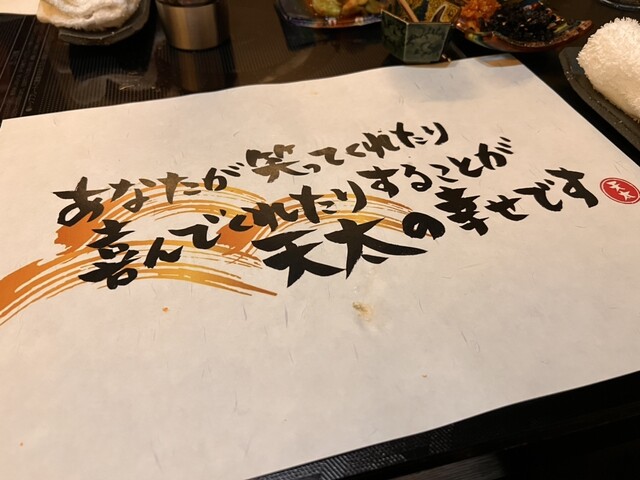 あなたが笑ってくれたり
喜んでくれたりすることが
天太の幸せです
天太